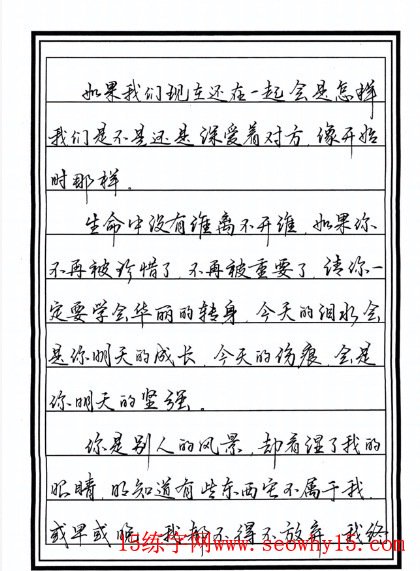 如果我们现在还在一起会是怎样
我们是不是还是深爱着对方,像开始
时那样。
生命中没有谁离不开谁,如果你
不再被珍惜了,不再被重要了,请你一
定要学会华丽的转身,今天的泪水会
是你明天的成长,今天的伤痕,会是
你明天的坚强。
你是别人的风景,却看湿了我的
眼睛,明知道有些东西它不属于我,
或早或晚,我都不得不放弃,我终
15练字网www.seowhy15.com